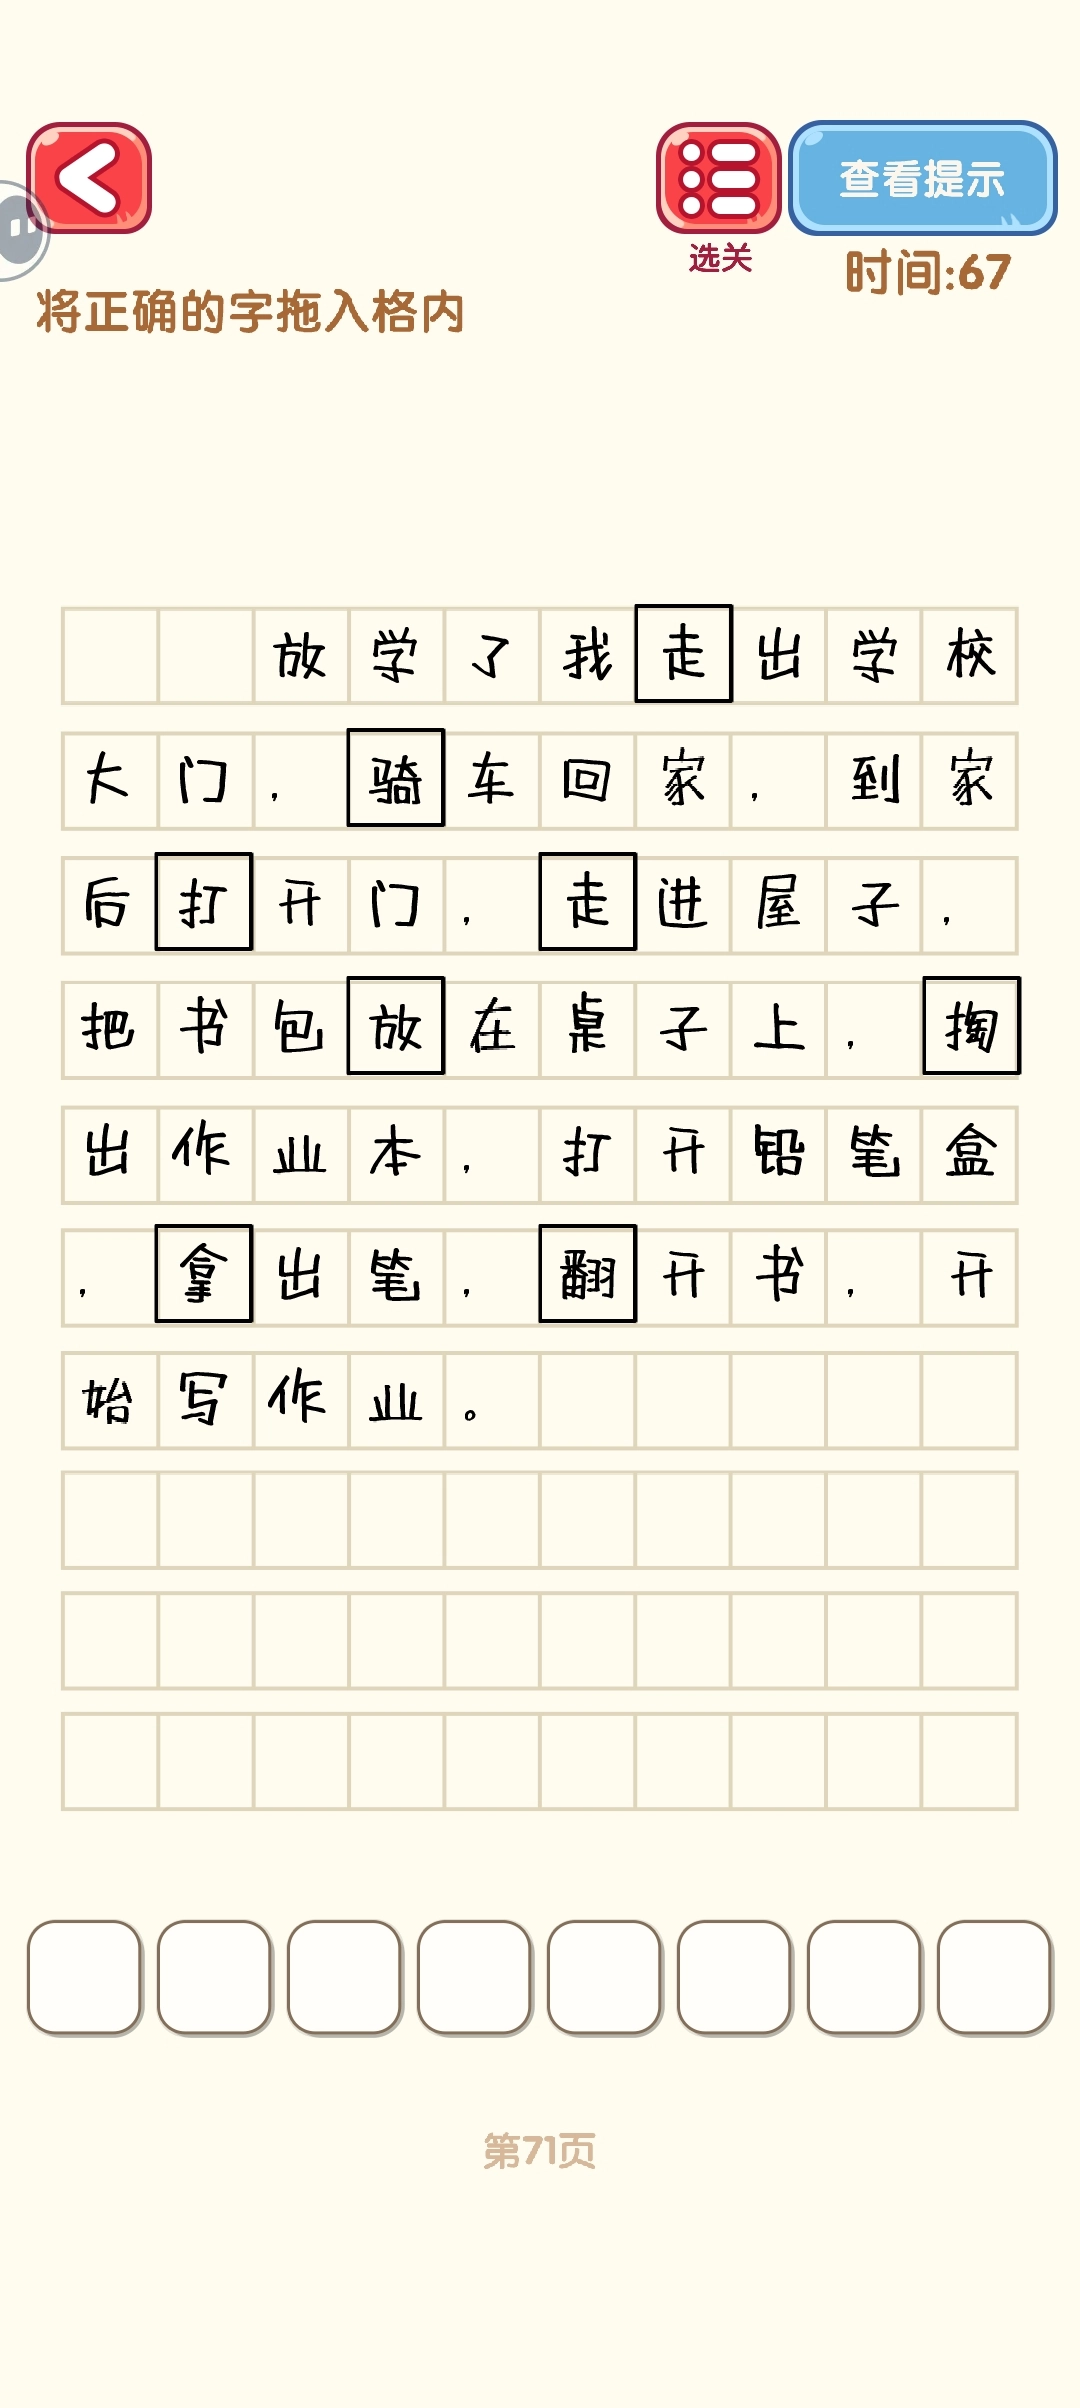 查看提示
选关
时间:67
将正确的字拖入格内
放学了我走出学校
大门，骑车回家，到家
后打开门，走进屋子，
把书包放在桌子上，掏
出作业本，打开铅笔盒
，拿出笔，翻开书，开
始写作业。
第71页